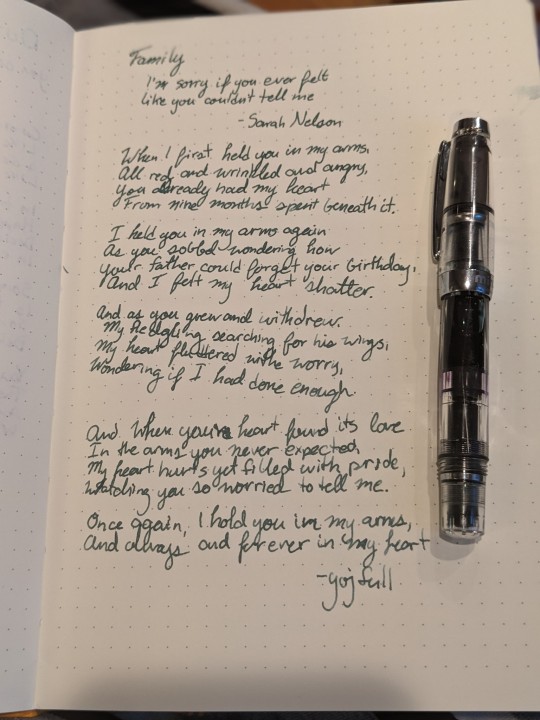 Family
I'm sorry if you ever felt
like you couldn't tell me
- Sarah Nelson
When I first held you in my arms,
All red and wrinkled and angry,
You already had my heart
From nine months spent beneath it.
I held you in my arms again
As you sobbed wondering how
your father could forget your birthday,
And I felt my heart shatter.
And as you grew and withdrew.
My fledgling searching for his wings,
My heart fluttered with worry,
Wondering if I had done enough.
And when your heart found its love
In the arms you never expected,
My heart hurts yet filled with pride,
Watching you so worried to tell me.
Once again, I hold you in my arms,
And always and forever in my heart
- yojfull